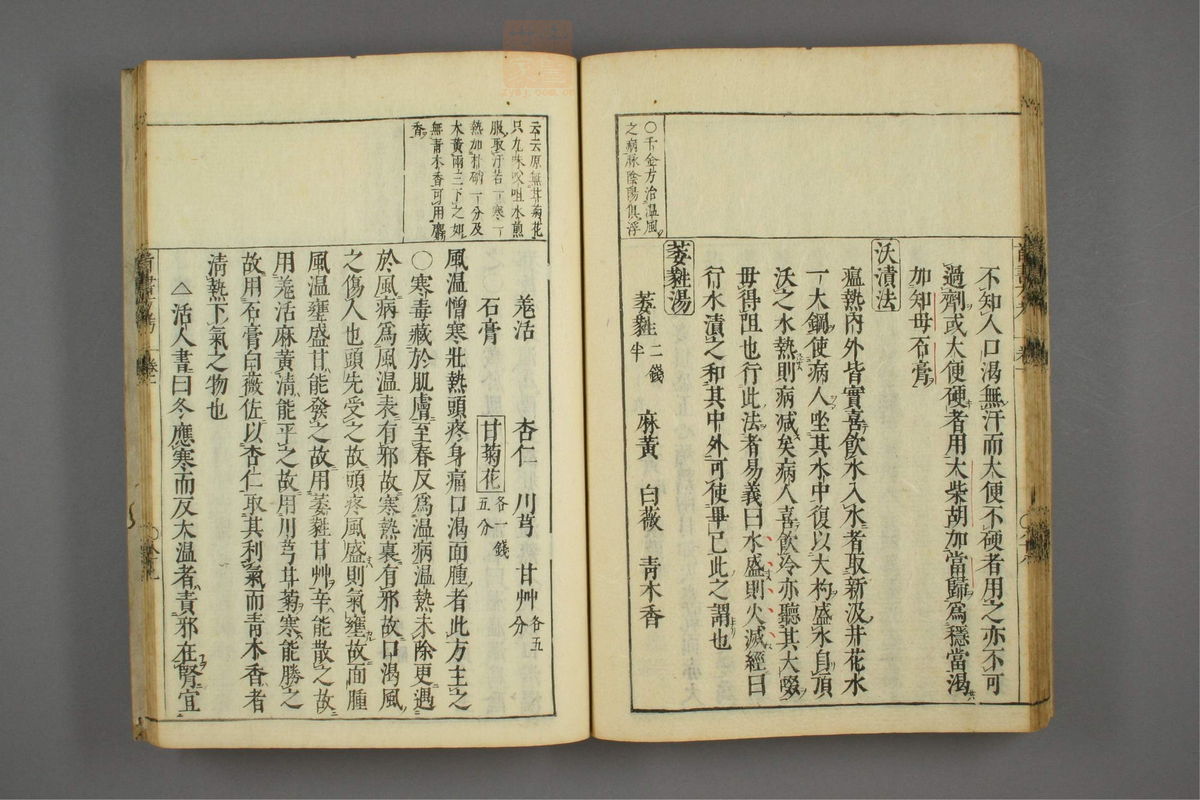 ○千金方治温風
之病脉陰陽俱浮
不知人口渴無汗而大便不硬者用之亦不可
過劑或大便硬者用大柴胡加當歸爲穩當渴
加知母石膏
沃漬法
瘟熱內外皆實喜飲水入水者取新汲井花水
一大鍋使病人坐其水中復以大杓盛水自頂
沃之水熱則病減矣病人喜飲冷亦聽其大啜
毋得阻也行此法者易義曰水盛則火滅經曰
行水漬之和其中外可使畢已此之謂也
萎蕤湯
萎蕤二錢半 麻黃 白薇 青木香
云云原無甘菊花
只九味㕮咀水煎
服取汗若一寒一
熱加朴硝一分及
大黃兩三下之如
無青木香可用麝
香
羗活 杏仁 川芎 甘艸各五分
石膏 甘菊花各一錢五分
風温憎寒壯熱頭疼身痛口渴面腫者此方主之
○寒毒藏於肌膚至春反爲温病温熱未除更遇
於風病爲風温表有邪故寒熱裏有邪故口渴風
之傷人也頭先受之故頭疼風盛則氣壅故面腫
風温壅盛甘能發之故用萎蕤甘艸辛能散之故
用羗活麻黃清能平之故用川芎甘菊寒能勝之
故用石膏白薇佐以杏仁取其利氣而青木香者
清熱下氣之物也
△活人書曰冬應寒而反大温者責邪在腎宜